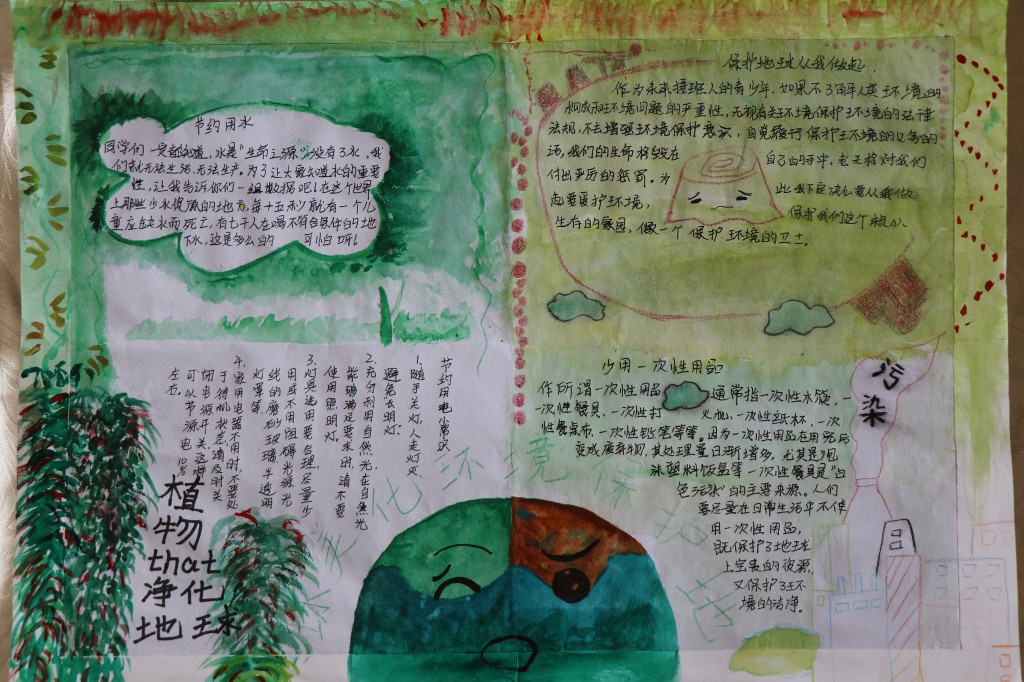 节约用水
同学们一定都知道，水是"生命之源"没有了水，我
们就无法生活，无法生产。为了让大家知道水的重要
性，让我告诉你们一组数据吧！在这个世界
上那些少水资源的地方，每十五秒就有一个儿
童应在缺水而死亡，有七千人在喝不符合条件的地
下水，这是多么的 可怕呀！
保护地球从我做起
作为未来接班人的青少年，如果不了解人类环境的
构成和环境问题的严重性，无视有关环境保护环境的法律
法规，不去增强环境保护意识，自觉履行保护环境的义务的
话，我们的生命将毁在 自己的手中，老天将对我们
付出严厉的惩罚。为 此我下定决心要从我做
起要爱护环境， 保护我们这个
生存的家园，做一个保护环境的卫士。
节约用电小常识
1、随手关灯，人走灯灭
避免长明灯。
2、充分利用自然光，在自然光
能够满足要求时，请不要
使用照明灯。
3、灯具选用要合理，尽量少
用或不用阻碍光源光
线的磨砂玻璃，半透明
灯罩等。
4、家用电器不用时，不要处
于待机状态，请及时关
闭电源开关，这样
可以节源电 10%
左右。
少用一次性用品
作所谓一次性用品 通常指一次性木筷，一
次性餐具、一次性打 火机、一次性纸杯、一次
性餐桌布、一次性铅笔等等。因为一次性用品在用完后
变成废弃物，其处理量日渐增多，尤其是泡
沫塑料饭盒等一次性餐具是"白
色污染"的主要来源。人们
要尽量在日常生活中不使
用一次性用品，
既保护了地球
上宝贵的资源，
又保护了环
境的洁净。
污
染
美化环境保护
植
物
that
净化
地球